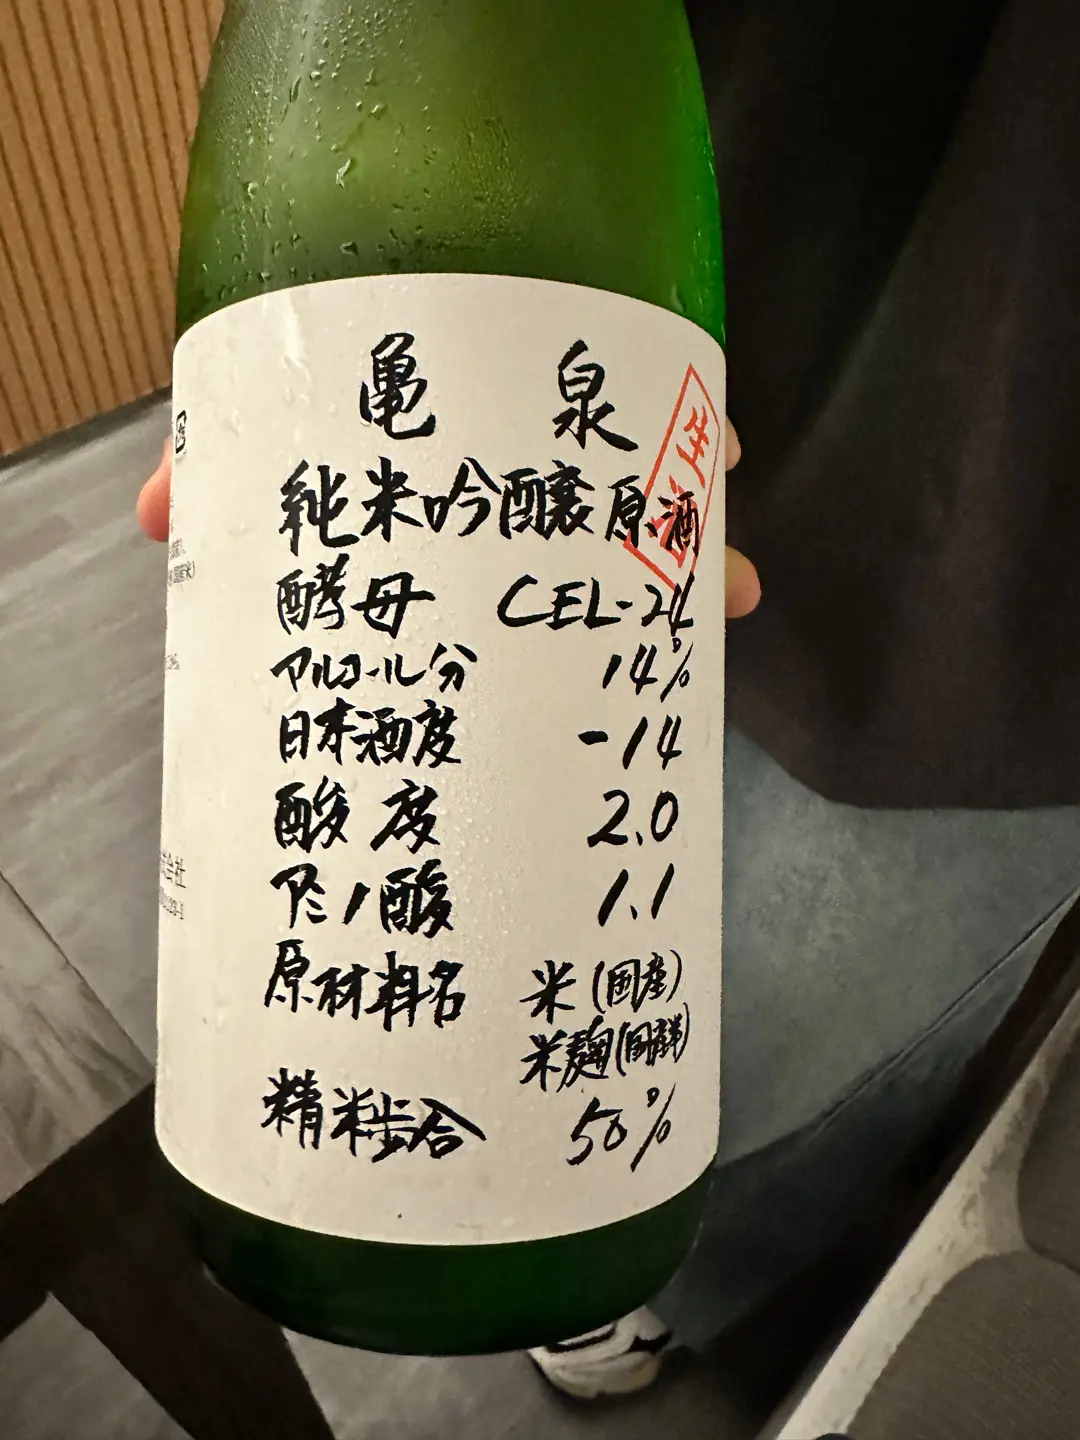 亀泉
純米吟醸原酒
生酒
酵母 CEL-24
アルコール分 14%
日本酒度 -14
酸度 2.0
アミノ酸 1.1
原材料名 米(国産)
米麹(国産米)
精米歩合 50%
式会社